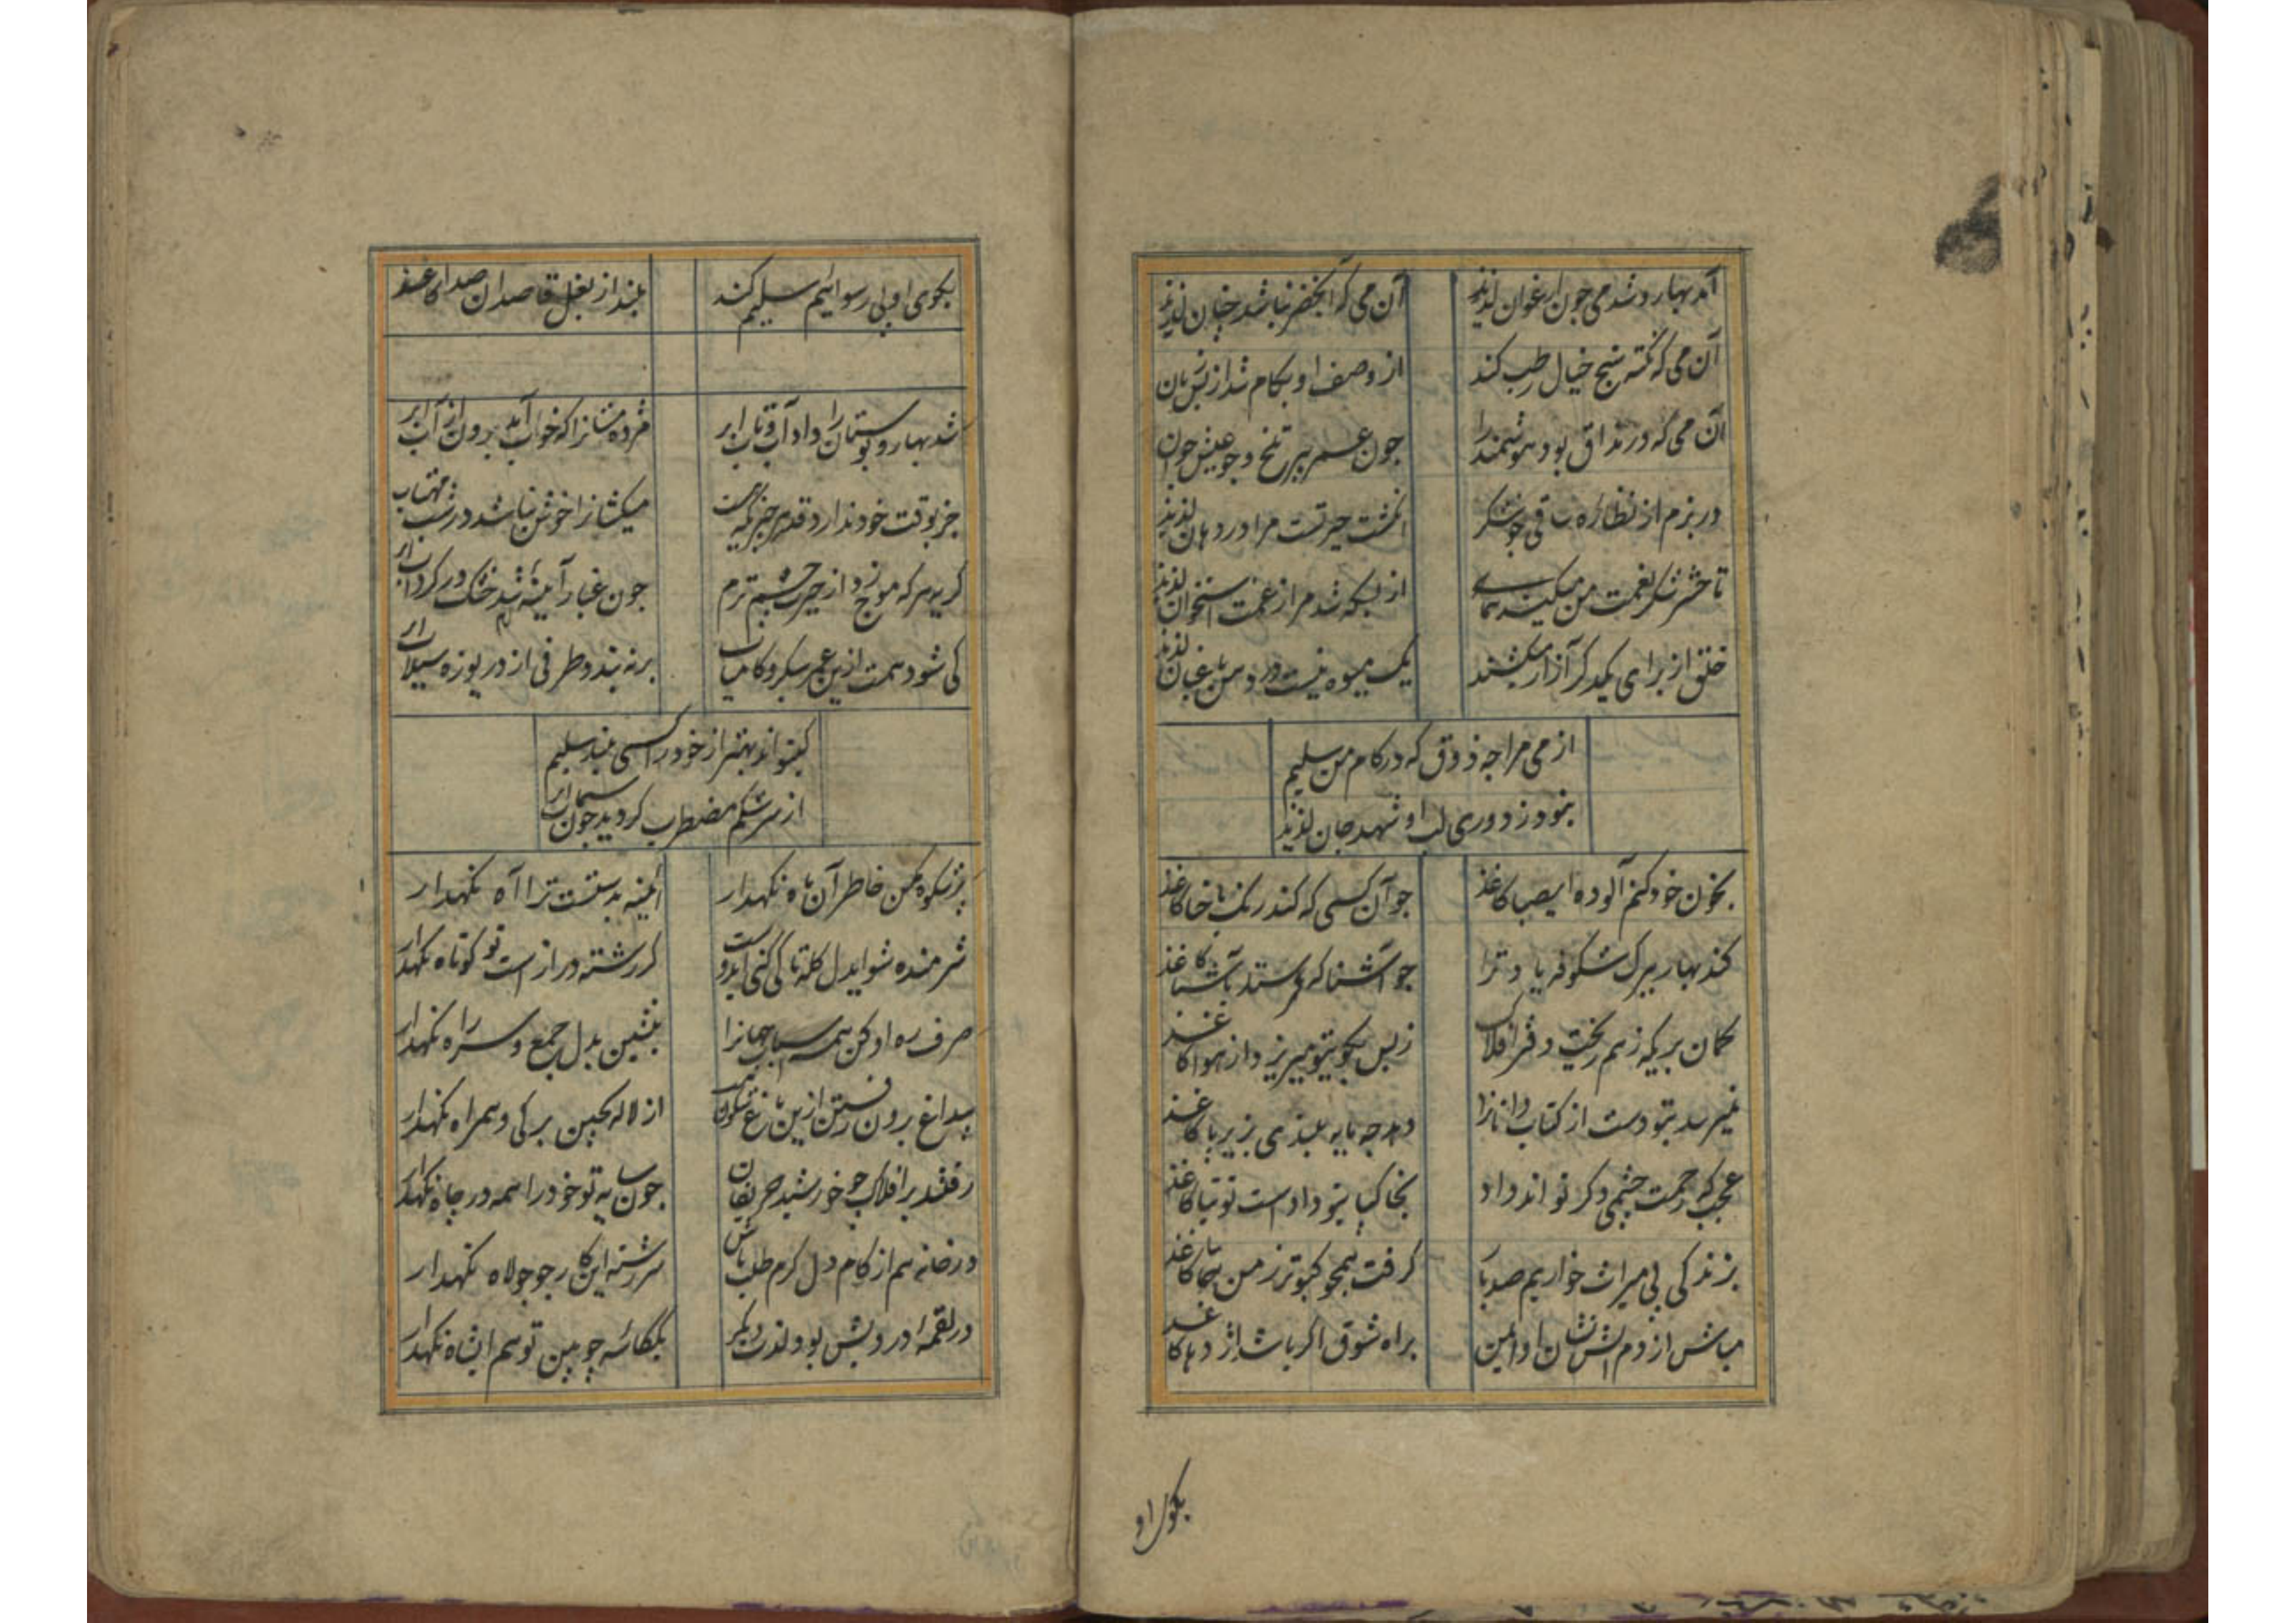 آمد بهار و شد می چون ارغوان لذیذ آن می که آبخضر نباشد چنان لذیذ
آن می که نکته سنج خیال رطب کند از وصف او بکام شد از بس زبان
آن می که در مذاق بود هوشمند را چون عمر پیر تلخ و چو عیش جوان
در بزم از نظاره ساقی چو نیشکر انگشت حیرتست مرا در دهان لذیذ
تا حشر شکر نعمت من میکند همای از بسکه شد مرا ز غمت استخوان لذیذ
خلق از برای یکدگر آزار میکشند یک میوه نیست در چمن باغبان لذیذ
از می مرا چه ذوق که در کام من سلیم
نبود ز دوری لب او شهد جان لذیذ
بخون خود کنم آلوده ای صبا کاغذ چو آن کسی که کند رنگ با حنا کاغذ
کند بهار ببرگ شکوفه یاد ترا چو آشنا که فرستد بآشنا کاغذ
گمان بری که ز هم ریخت دفتر افلاک ز بس بکوی تو میریزد از هوا کاغذ
نمیرسد بتو دست از کتاب دانا را دهد چه پایه بلندی بزیر پا کاغذ
عجب که رحمت چشمی دگر تواند داد بخاکپای تو دادست توتیا کاغذ
بزندگی پی میراث خواریم صد بار گرفت همچو کبوتر ز من کاغذ
مباش از دم آتش او ایمن براه شوق اگر باشد اژدها کاغذ
بکوی او
بکوی او پی رسواییم سلیم کند بلند از بغل قاصدان صدا کاغذ
شد بهار و بوستان را داد آب و تاب ابر مژده مستانرا که خواب آمد برون از آب ابر
جز بوقت خود ندارد قدر هر چیزیکه هست میکشانرا خوش نباشد در شب مهتاب ابر
گریه هرگه موج زد از حیرت چشم ترم چون غبار آینه شد خشک در گرداب ابر
کی شود همت ازین عمر سبکرو کامیاب برنه بندد طرفی از دریوزه سیلاب ابر
کی تواند بهتر از خود را کسی بیند سلیم
از سرشکم مضطرب گردید چون سیماب ابر
پژشکوه مکن خاطر آن ماه نگهدار آیینه بدستست ترا آه نگهدار
شرمنده شو ایدل گله تا کی کنی ایدوست گر رشته درازست تو کوتاه نگهدار
صرف ره او کن همه اسباب جهانرا بنشین بدل جمع و سر راه نگهدار
بیداغ برون رفتن ازین باغ شگون نیست از لاله بچین برگی و همراه نگهدار
رفتند بر افلاک چو خورشید حریفان چون سایه تو خود را همه در چاه نگهدار
در خانه هم از کام دل گرم طلب باش سررشته این کار چو جولاه نگهدار
در لقمه درویش بود لذت دیگر یکگاسه چوبین تو هم ایشاه نگهدار